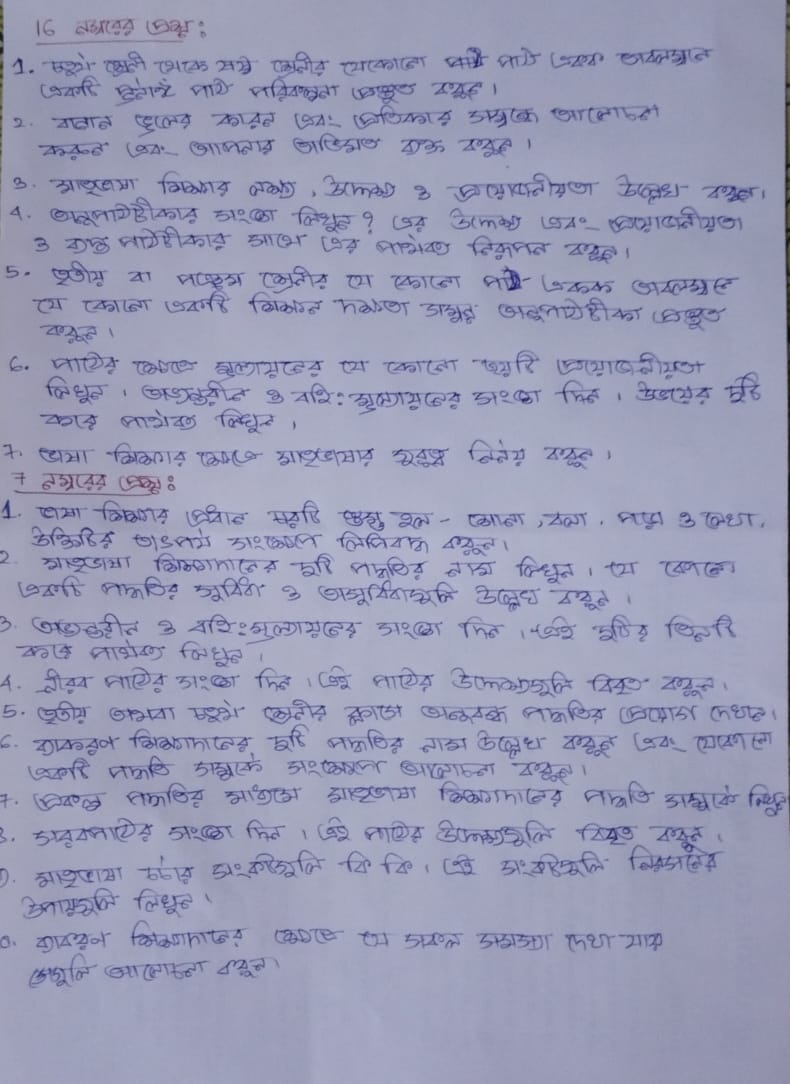 16 নম্বরের প্রশ্ন :
1. চতুর্থ শ্রেণী থেকে ষষ্ঠ শ্রেণীর যেকোনো পাঠ একক অবলম্বনে
একটি পূর্ণাঙ্গ পাঠ পরিকল্পনা প্রস্তুত করুন।
2. বানান ভুলের কারন এবং প্রতিকার সম্পর্কে আলোচনা
করুন এবং আপনার অভিমত ব্যক্ত করুন।
3. মাতৃভাষা শিক্ষার লক্ষ্য, উদ্দেশ্য ও প্রয়োজনীয়তা উল্লেখ করুন।
4. অনুপাঠটীকার সংজ্ঞা লিখুন? এর উদ্দেশ্য এবং প্রয়োজনীয়তা
ও বৃহৎ পাঠটীকার সাথে এর পার্থক্য নিরূপন করুন।
5. তৃতীয় বা পঞ্চম শ্রেনীর যে কোনো পাঠ একক অবলম্বনে
যে কোনো একটি শিক্ষন দক্ষতা অনুপাঠটীকা প্রস্তুত
করুন।
6. পাঠের ক্ষেত্রে মূল্যায়নের যে কোনো ছয়টি প্রয়োজনীয়তা
লিখুন। অভ্যন্তরীন ও বহিঃমূল্যায়নের সংজ্ঞা দিন। উভয়ের দুটি
করে পার্থক্য লিখুন।
7. ভাষা শিক্ষার ক্ষেত্রে মাতৃভাষার গুরুত্ব নির্নয় করুন।
7 নম্বরের প্রশ্ন :
1. ভাষা শিক্ষার প্রধান চারটি স্তম্ভ হল - শোনা, বলা, পড়া ও লেখা,
উক্তিটির তাৎপর্য সংক্ষেপে লিপিবদ্ধ করুন।
2. মাতৃভাষা শিক্ষাদানের দুটি পদ্ধতির নাম লিখুন। যে কোনো
একটি পদ্ধতির সুবিধা ও অসুবিধাগুলি উল্লেখ করুন।
3. অভ্যন্তরীন ও বহিঃমূল্যায়নের সংজ্ঞা দিন। এই দুটির তিনটি
করে পার্থক্য লিখুন।
4. নীরব পাঠের সংজ্ঞা দিন। এই পাঠের উদ্দেশ্যগুলি বিবৃত করুন।
5. তৃতীয় অথবা চতুর্থ শ্রেনীর ক্লাসে অনুবন্ধ পদ্ধতির প্রয়োগ দেখান।
6. ব্যাকরণ শিক্ষাদানের দুটি পদ্ধতির নাম উল্লেখ করুন এবং যেকোনো
একটি পদ্ধতি সম্পর্কে সংক্ষেপে আলোচনা করুন।
7. প্রকল্প পদ্ধতির মাধ্যমে মাতৃভাষা শিক্ষাদানের পদ্ধতি সম্পর্কে লিখুন
8. সরবপাঠের সংজ্ঞা দিন। এই পাঠের উদ্দেশ্যগুলি বিবৃত করুন।
9. মাতৃভাষা চর্চার সংকটগুলি কি কি। এই সংকটগুলি নিরসনের
উপায়গুলি লিখুন।
10. ব্যাকরণ শিক্ষাদানের ক্ষেত্রে যে সকল সমস্যা দেখা যায়
সেগুলি আলোচনা করুন।